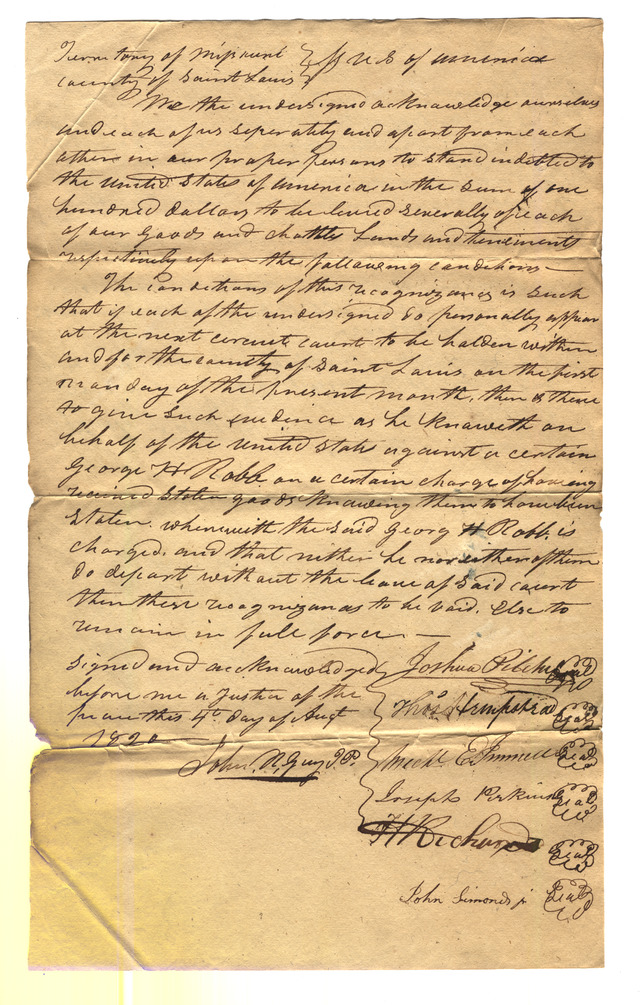 Territory of Missouri } ss U S of america
county of Saint Louis }
We the undersigned acknowledge ourselves
and each of us seperately and apart from each
other in our proper persons to stand indebted to
the united States of america in the sum of one
hundred dollars to be levied severally of each
of our goods and chattles Lands and tenements
respectively upon the following conditions —
The conditions of this recognizance is such
that if each of the undersigned do personally appear
at the next circuit court to be holden within
and for the county of Saint Louis on the first
monday of the present month, then & there
to give such evidence as he knoweth on
behalf of the united States against a certain
George H Robb on a certain charge of having
received stolen goods knowing them to have been
Stolen. wherewith the said George H Robb is
charged, and that neither he nor either of them
do depart without the leave of said court
then these recognizances to be void. Else to
remain in full force. —
Signed and acknowledged
before me a Justice of the
peace this 4th day of Augt
1820
John N. Guy J.P.
Joshua Pilcher Seal
Thos Hempstead Seal
Michl E Immell Seal
Joseph Perkins Seal
H Richard Seal
John Simonds jr Seal